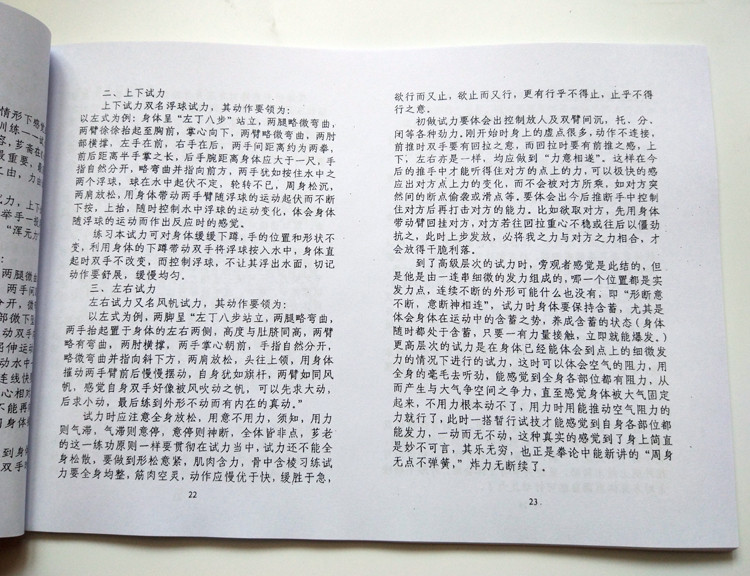 情形下感觉
训练——"试
容,芗斋在
最重要,最
由,力由
试力,上下
举手一
"浑元力"
二、上下试力
上下试力双名浮球试力,其动作要领为:
以左式为例:身体呈"左丁八步"站立,两腿略微弯曲,
两臂徐徐抬起至胸前,掌心向下,两臂略微弯曲,两肘
部横撑,左手在前,右手在后,两手间距离约为两拳,
前后距离半手掌之长,后手腕距离身体应大于一尺,手
指自然分开,略弯曲并指向前方,两手犹如按住水中之
两个浮球,球在水中起伏不定,轮转不已,周身松沉,
两肩放松,用身体带动两手臂随浮球的运动起伏而不断
下按,上抬,随时控制水中浮球的运动变化,体会身体
随浮球的运动而作出反应时的感觉。
练习本试力可对身体缓缓下蹲,手的位置和形状不
变,利用身体的下蹲带动双手将浮球按入水中,身体直
起时双手不改变,而控制浮球,不让其浮出水面,切记
动作要舒展,缓慢均匀。
三、左右试力
左右试力又名风帆试力,其动作要领为:
以左式为例,两脚呈"左丁八步"站立,两腿略弯曲,
两手抬起置于身体的左右两侧,高度与肚脐同高,两臂
略有弯曲,两肘横撑,两手掌心朝前,手指自然分开,
略微弯曲并指向斜下方,两肩放松,头往上领,用身体
摧动两手臂前后慢慢摆动,自身犹如旗杆,两臂如同风
帆,感觉自身双手好像被风吹动之帆,可以先求大动,
后求小动,最后练到外形不动而有内在的真动。"
试力时应注意全身放松,用意不用力,须知,用力
则气滞,气滞则意停,意停则神断,全体皆非点,芗老
的这一练功原则一样要贯彻在试力当中,试力还不能全
身松散,要做到形松意紧,肌肉含力,骨中含棱习练试
力要全身均整,筋肉空灵,动作应慢优于快,缓胜于急,
22
欲行而又止,欲止而又行,更有行乎不得止,止乎不得
行之意。
初做试力要体会出控制放人及双臂间沉,托、分、
闭等各种劲力,刚开始时身上的虚点很多,动作不连接,
前推时双手要有回拉之意,而回拉时要有前推之感,上
下、左右亦是一样,均应做到"力意相连"。这样在今
后的推手中才能听得住对方的点上的力,可以极快的感
应出对方点上力的变化,而不会被对方所乘,如对方突
然间的断点偷袭或滑点等。要体会出今后推断手中控制
住对方后再打击对方的能力。比如欲取对方,先用身体
带动臂回挂对方,对方若往回拉重心不稳或往后以僵劲
抗之,此时上步发放,必将我之力与对方之力相合,才
会放得干脆利落。
到了高级层次的试力时,旁观者感觉是此结的,但
是他是由一连串细微的发力组成的,哪一个位置都是实
发力点,连续不断的外形可能什么也没有,即"形断意
不断,意断神相连",试力时身体要保持含蓄,尤其是
体会身体在运动中的含蓄之势,养成含蓄的状态(身体
随时都处于含蓄,只要一有力量接触,立即就能爆发。)
更高层次的试力是在身体已经能体会到点上的细微发
力的情况下进行的试力,这时可以体会空气的阻力,用
全身的毫毛去听劲,能感觉到全身各部位都有阻力,从
而产生与大气争空间之争力,直至感觉身体被大气固定
起来,不用力根本动不了,用力时用能推动空气阻力的
力就行了,此时一搭暂行试技才能感觉到自身各部位都
能发力,一动而无不动,这种真实的感觉到了身上简直
是妙不可言,其乐无穷,也正是拳论中能新讲的"周身
无点不弹簧,"炸力无断续了。
23